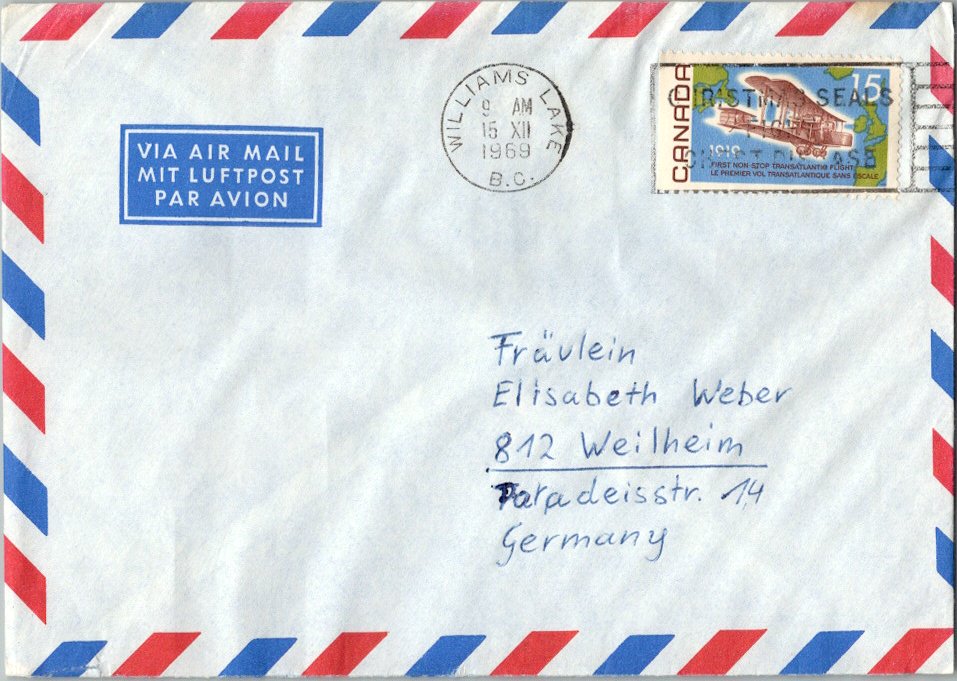 VIA AIR MAIL
MIT LUFTPOST
PAR AVION
WILLIAMS LAKE
9 AM
15 XII
1969
B.C.
CANADA
15
CHRISTMAS SEALS
FIGHT
CHEST DISEASE
1919
FIRST NON-STOP TRANSATLANTIC FLIGHT
LE PREMIER VOL TRANSATLANTIQUE SANS ESCALE
Fräulein
Elisabeth Weber
812 Weilheim
Paradeisstr. 14
Germany